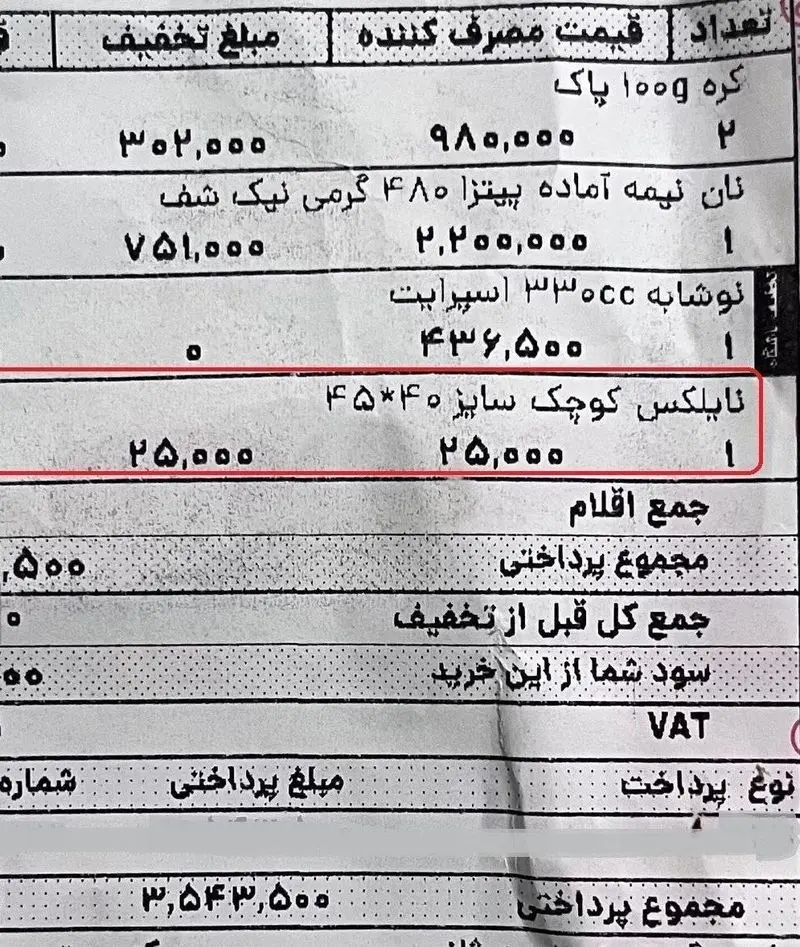 تعداد قیمت مصرف کننده مبلغ تخفیف
کره ۱۰۰g پاک
۲ ۹۸۰,۰۰۰ ۳۰۲,۰۰۰
نان نیمه آماده پیتزا ۴۸۰ گرمی نیک شف
۱ ۲,۲۰۰,۰۰۰ ۷۵۱,۰۰۰
نوشابه ۳۳۰cc اسپرایت
۱ ۴۳۶,۵۰۰ ۰
نایلکس کوچک سایز ۴۰*۴۵
۱ ۲۵,۰۰۰ ۲۵,۰۰۰
جمع اقلام
مجموع پرداختی ,۵۰۰
جمع کل قبل از تخفیف ۰
سود شما از این خرید ۰۰
VAT
نوع پرداخت مبلغ پرداختی شماره
مجموع پرداختی ۳,۵۴۳,۵۰۰